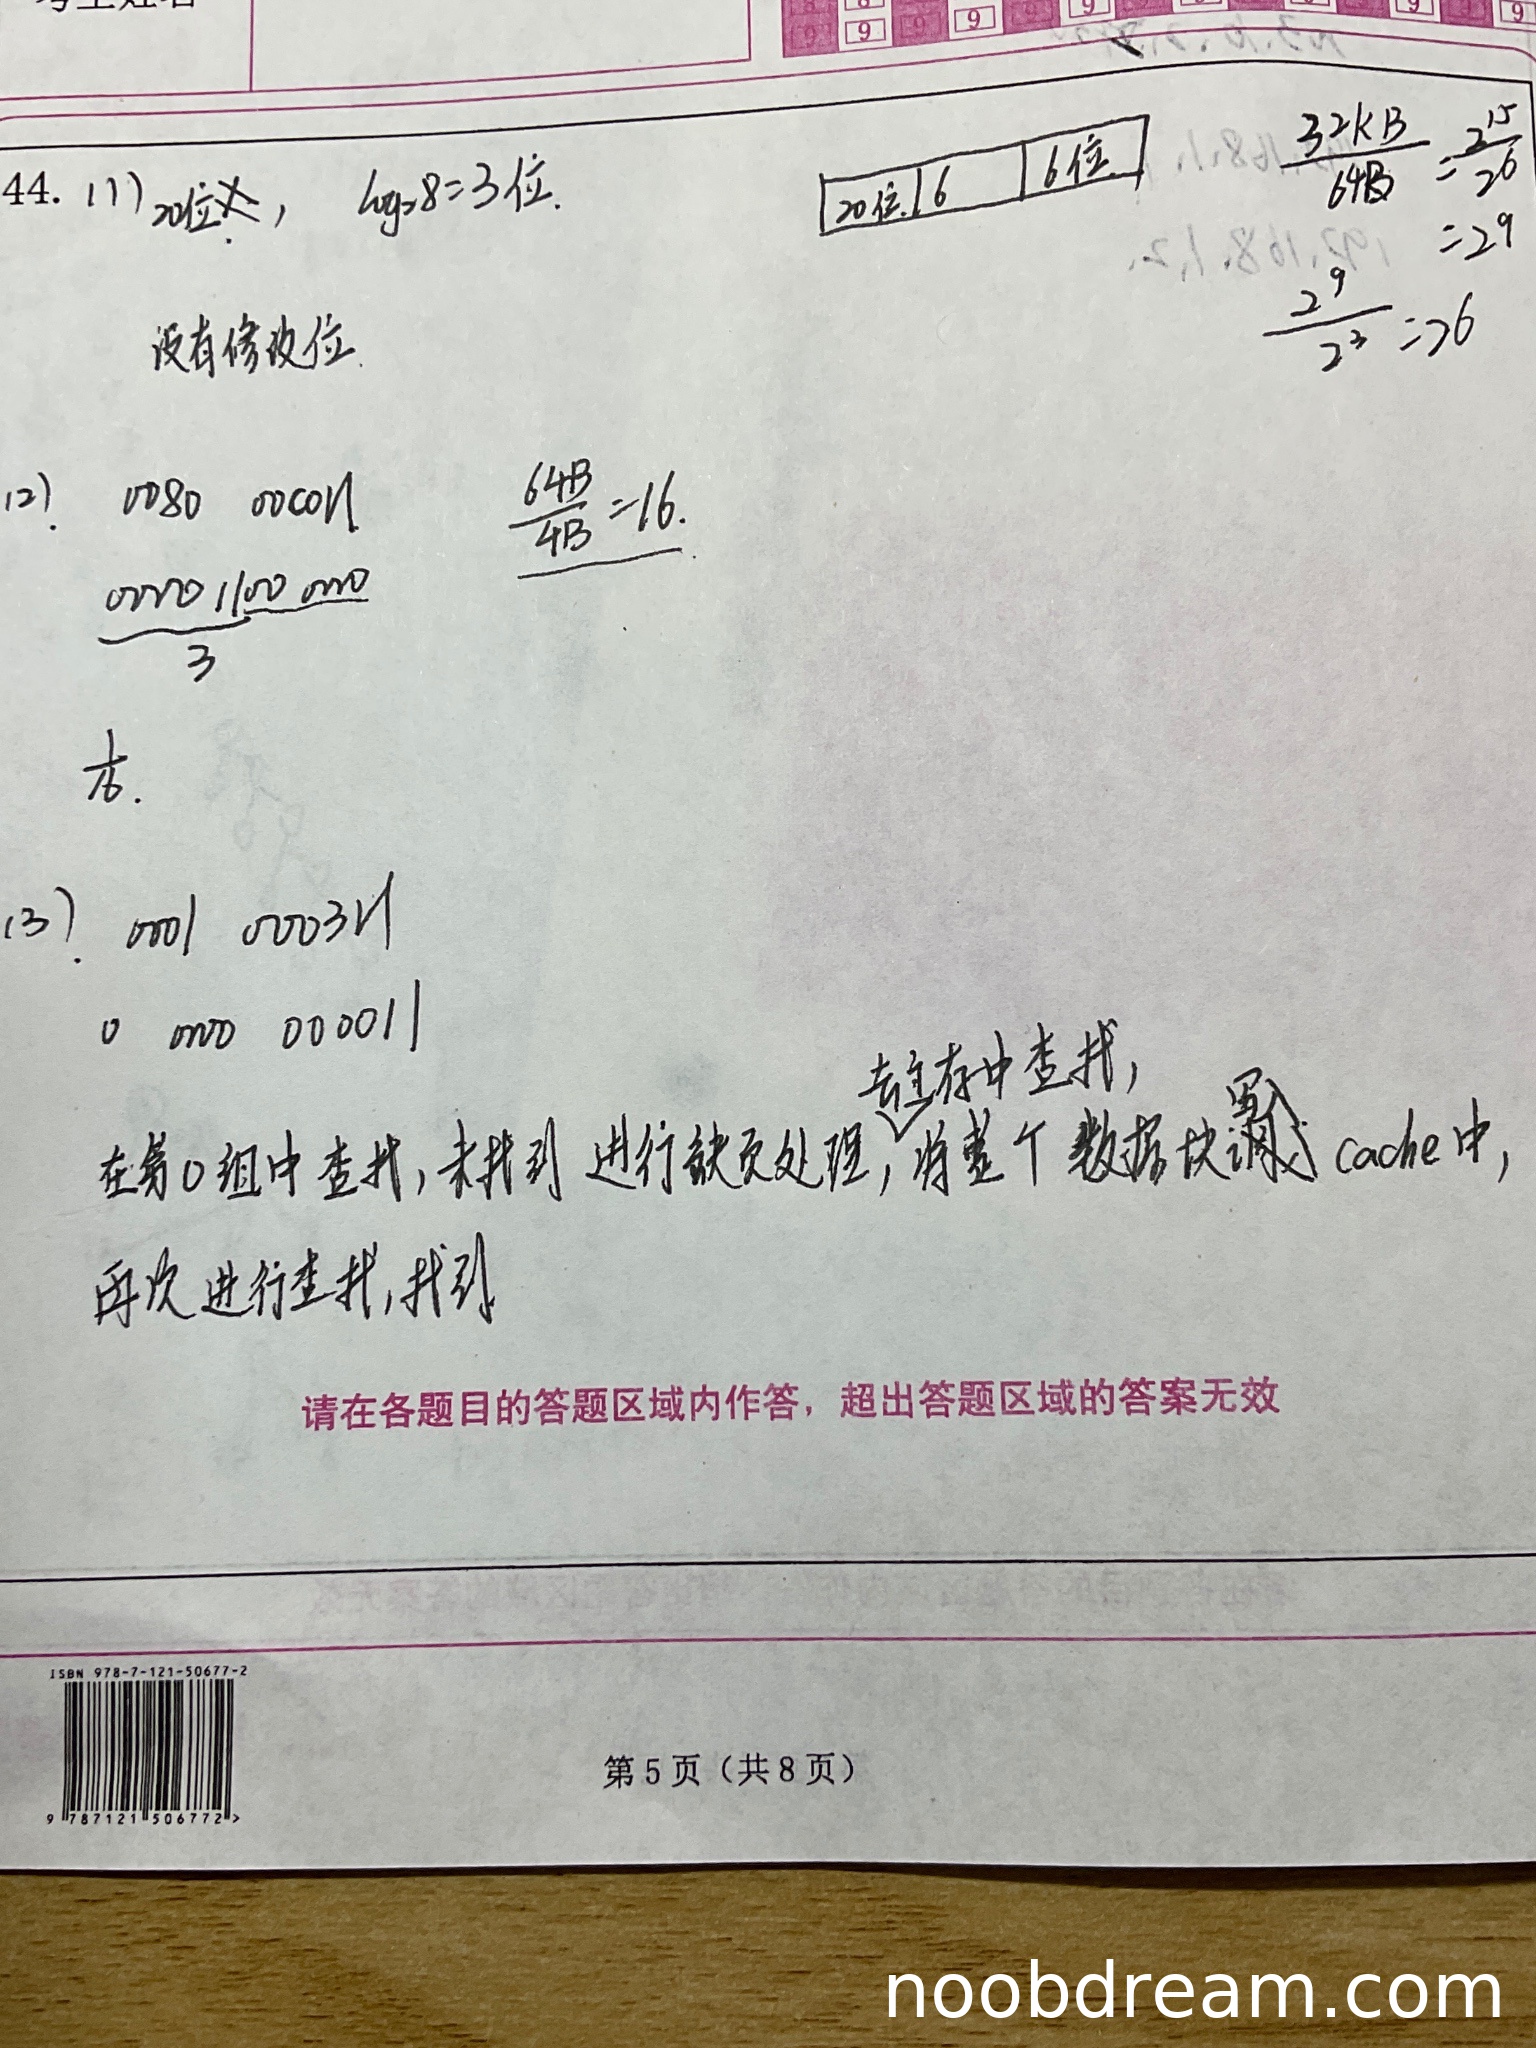 考生姓名
44. (1) 20位, log₂8=3位.
20位 6 6位
32KB/64B = 2^15/2^6
=2^9
2^9/2^3 =2^6
没有修改位.
(2). 0080 00C0H 64B/4B =16.
0000 1100 0000
3
1/16.
(3). 0001 0003H
0 0000 000011
去主存中查找,
在第0组中查找,未找到 进行缺页处理,将整个数据块写入cache中,
再次进行查找,找到
请在各题目的答题区域内作答,超出答题区域的答案无效
ISBN 978-7-121-50677-2
9 787121 506772 >
第 5 页(共 8 页)
noobdream.com